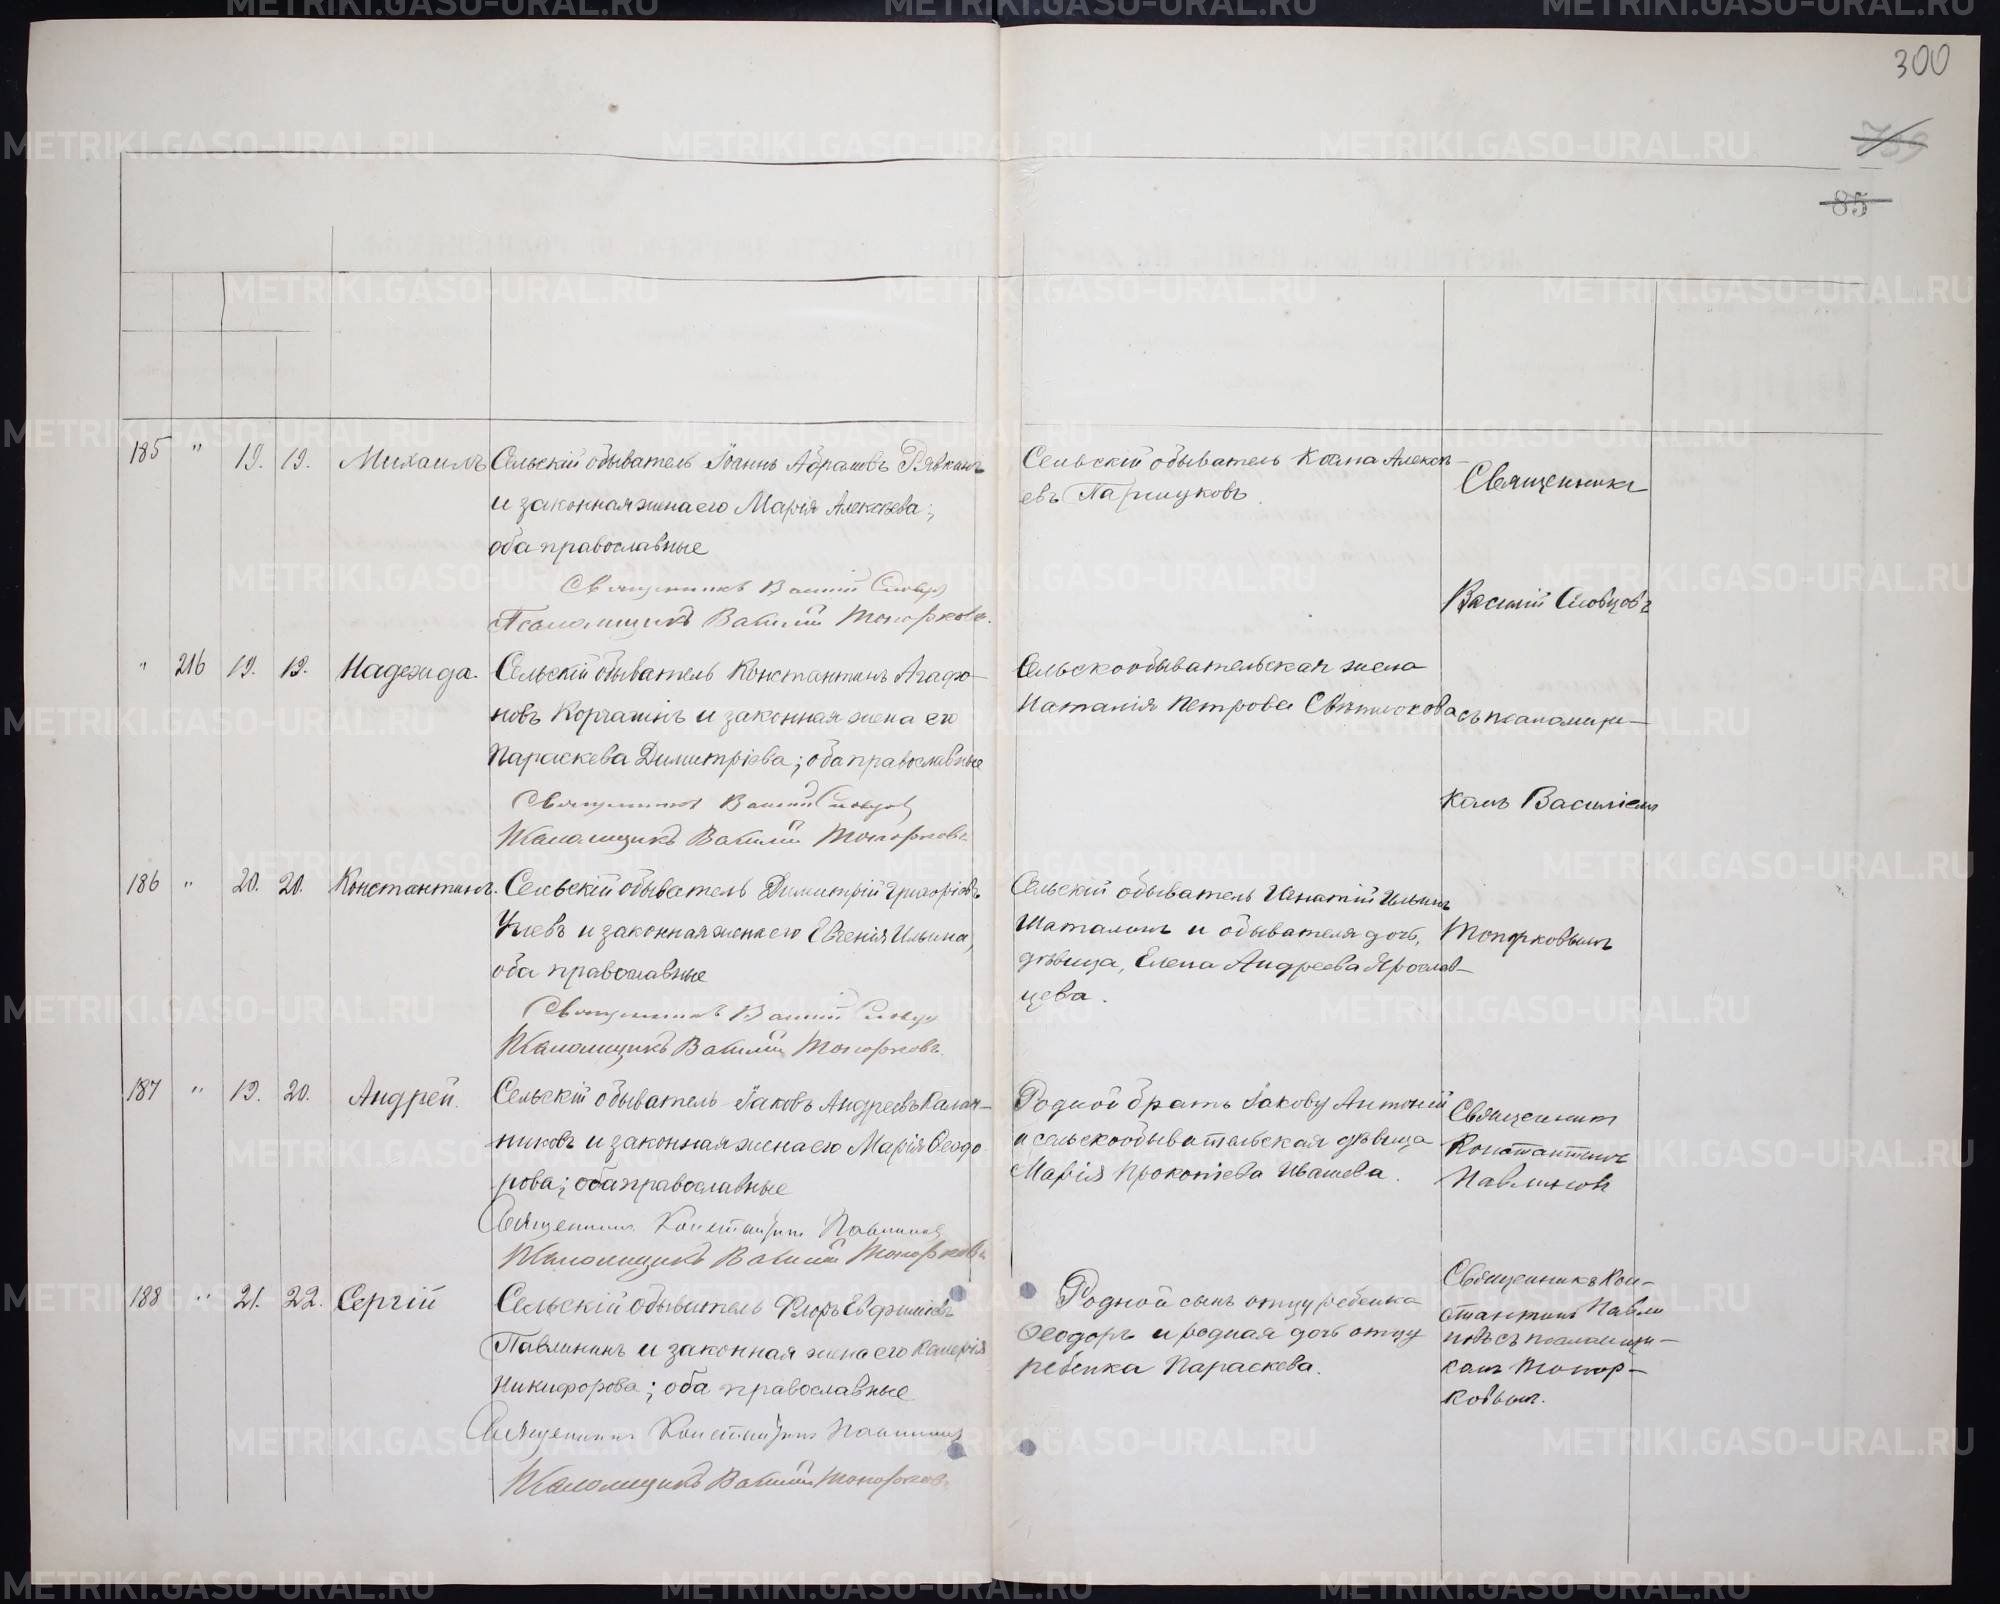 300
739
85
185 " 19. 19. Михаилъ Сельскій обыватель Іоаннъ Абрамовъ Рявкинъ
и законная жена его Марія Алексѣева;
оба православные
Священникъ Василій Словцовъ
Псаломщикъ Василій Топорковъ.
Сельскій обыватель Алексѣ-
евъ
Священникъ
Василій Словцовъ
" 216 19. 19. Надежда. Сельскій обыватель Константинъ Агафо-
новъ Корчагинъ и законная жена его
Параскева Димитріева; оба православные
Священникъ Василій Словцовъ
Псаломщикъ Василій Топорковъ
Сельскообывательская жена
Наталія Петрова
съ псаломщи-
комъ Василіемъ
186 " 20. 20. Константинъ. Сельскій обыватель Димитрій Григорьевъ
и законная жена его Евгенія Ильина,
оба православные
Священникъ Василій Словцовъ
Псаломщикъ Василій Топорковъ.
Сельскій обыватель Игнатій Ильинъ
Шаталинъ и обывателя дочь,
дѣвица, Елена Андреева Ярослав-
цева.
Топорковымъ
187 " 19. 20. Андрей. Сельскій обыватель Іаковъ Андреевъ Калач-
никовъ и законная жена его Марія Ѳеодо
рова; оба православные
Священникъ Константинъ Павлиновъ
Псаломщикъ Василій Топорковъ
Родной братъ Іакову Антоній
и сельскообывательская дѣвица
Марія Прокопіева Ивашева.
Священникъ
Константинъ
Павлиновъ
188 " 21. 22. Сергій Сельскій обыватель Флоръ Евфиміевъ
Павлининъ и законная жена его Калерія
Никифорова; оба православные
Священникъ Константинъ Павлиновъ
Псаломщикъ Василій Топорковъ.
Родной сынъ отцу ребенка
Ѳеодоръ и родная дочь отцу
ребенка Параскева.
Священникъ Кон-
стантинъ Павли
новъ съ псаломщи-
комъ Топор-
ковымъ.
METRIKI.GASO-URAL.RU